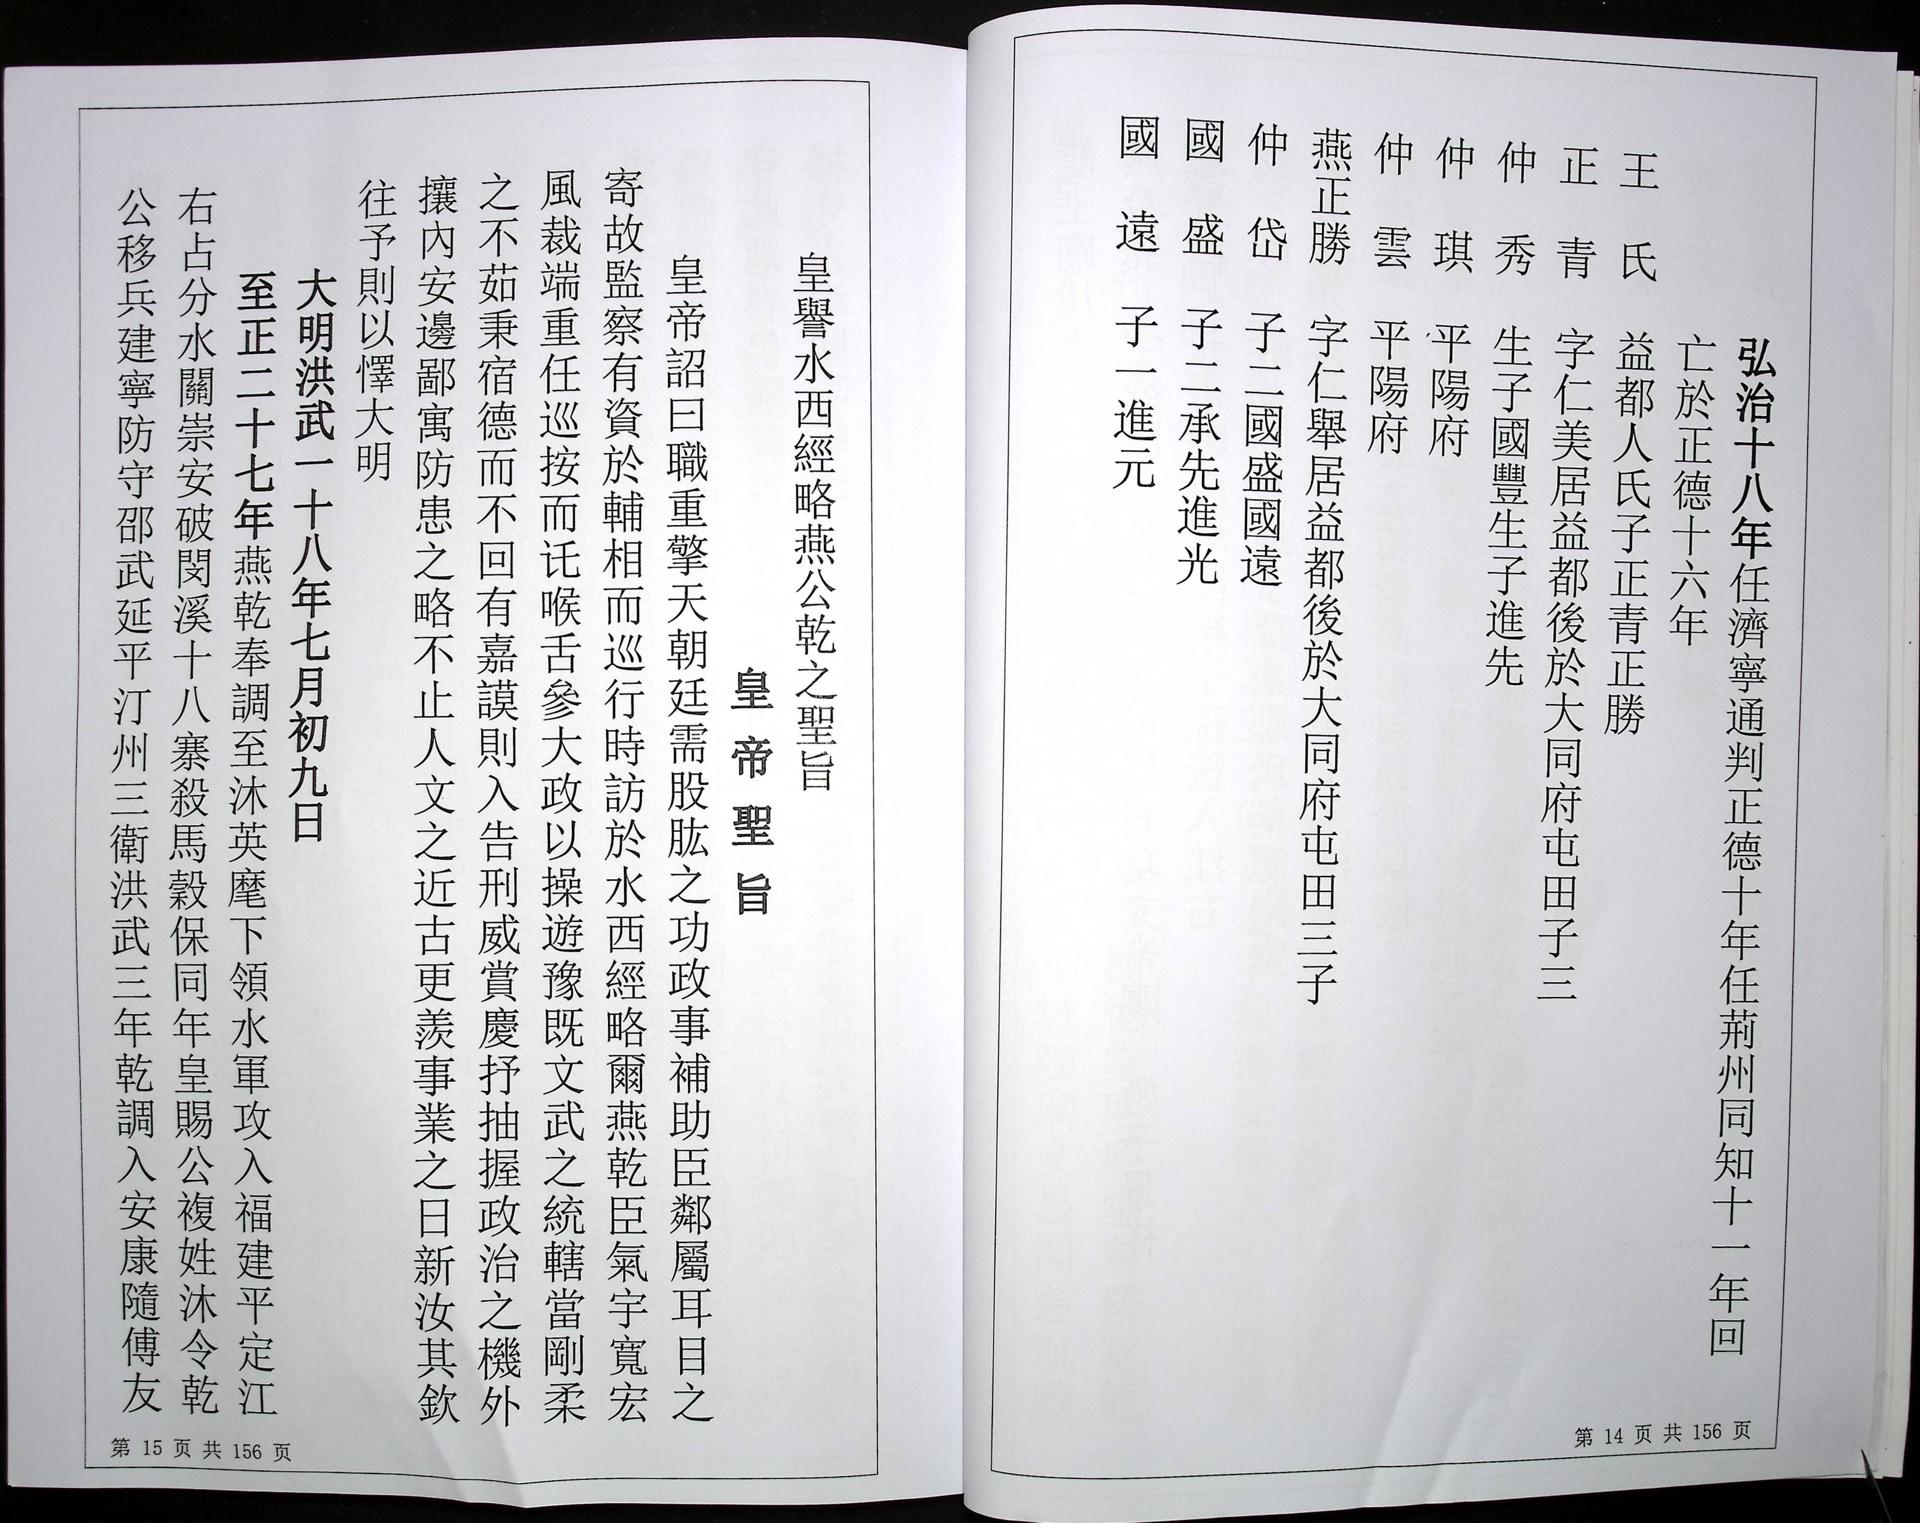 弘治十八年任濟寧通判正德十年任荊州同知十一年回
亡於正德十六年
王氏 益都人氏子正青正勝
正青 字仁美居益都後於大同府屯田子三
仲秀 生子國豐生子進先
仲琪 平陽府
仲雲 平陽府
燕正勝 字仁舉居益都後於大同府屯田三子
仲岱 子二國盛國遠
國盛 子二承先進光
國遠 子一進元
第 14 页 共 156 页
皇譽水西經略燕公乾之聖旨
皇帝聖旨
皇帝詔曰職重擎天朝廷需股肱之功政事補助臣鄰屬耳目之
寄故監察有資於輔相而巡行時訪於水西經略爾燕乾臣氣宇寬宏
風裁端重任巡按而讬喉舌參大政以操遊豫既文武之統轄當剛柔
之不茹秉宿德而不回有嘉謨則入告刑威賞慶抒抽握政治之機外
攘內安邊鄙寓防患之略不止人文之近古更羨事業之日新汝其欽
往予則以懌大明
大明洪武一十八年七月初九日
至正二十七年燕乾奉調至沐英麾下領水軍攻入福建平定江
右占分水關崇安破閔溪十八寨殺馬穀保同年皇賜公複姓沐令乾
公移兵建寧防守邵武延平汀州三衛洪武三年乾調入安康隨傅友
第 15 页 共 156 页